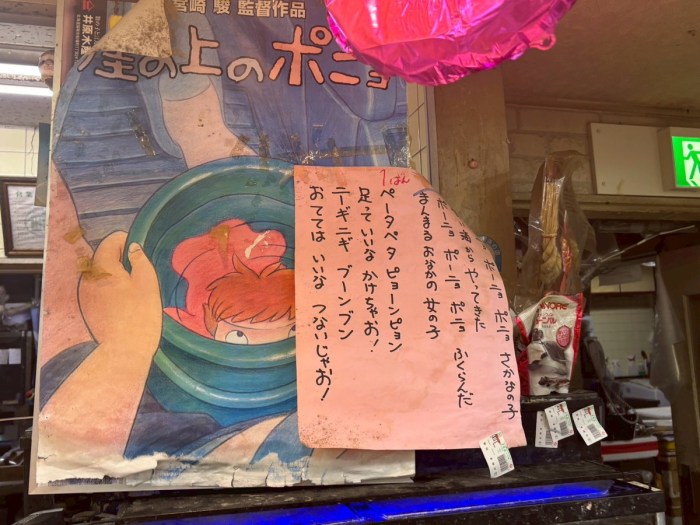 宮崎 駿 監督作品
崖の上のポニョ
井原水産
1ばん
ポーニョ ポニョ さかなの子
海から やってきた
ポーニョ ポーニョ ポニョ ふくらんだ
まんまる おなかの 女の子
ペータペタ ピョーンピョン
足って いいな かけちゃお!
ニーギニギ ブーンブン
おててはいいな つないじゃお!